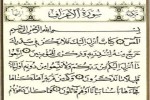 سورة الأعراف
بسم الله الرحمن الرحيم
المص كتاب أنزل إليك فلا يكن في صدرك حرج
منه لتنذر به وذكرى للمؤمنين اتبعوا ما
أنزل إليكم من ربكم ولا تتبعوا من دونه أولياء
قليلا ما تذكرون وكم من قرية أهلكناها